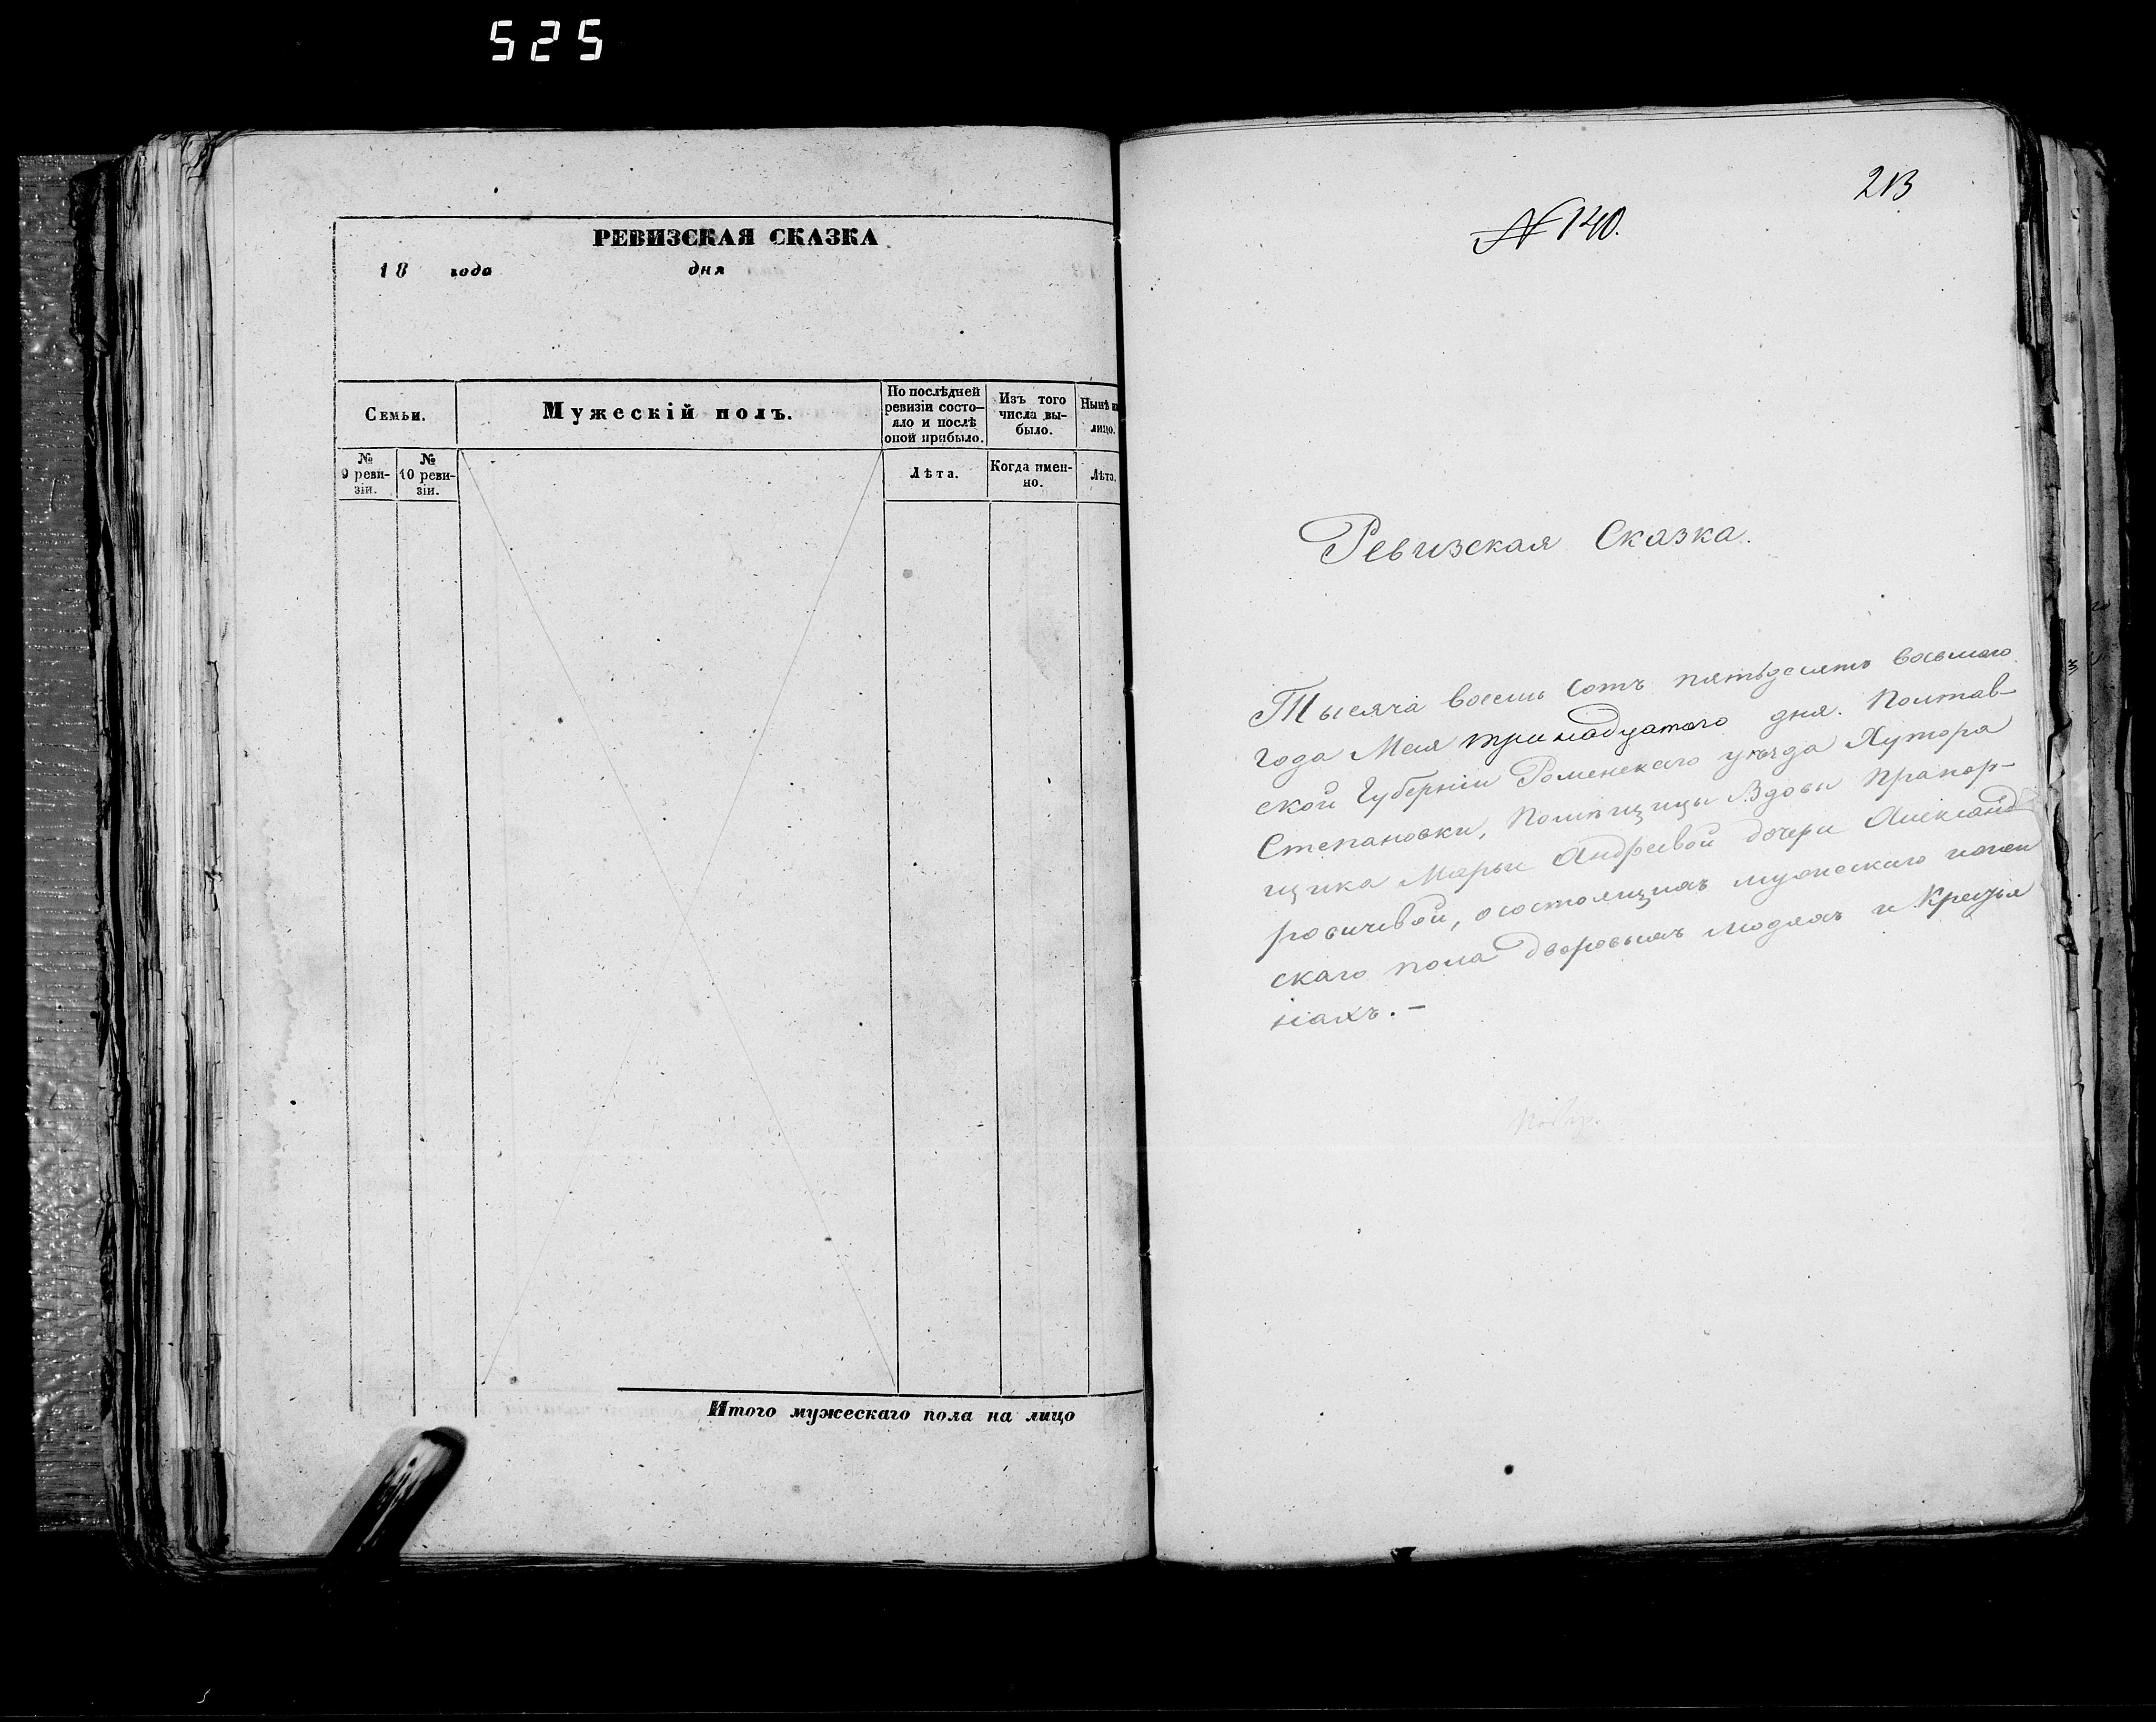 525
РЕВИЗСКАЯ СКАЗКА
18 года дня
Семьи.
Мужескій полъ.
По послѣдней
ревизіи состо-
яло и послѣ
оной прибыло.
Изъ того
числа вы-
было.
Нынѣ на
лицо.
№
9 реви-
зіи.
№
10 реви-
зіи.
Лѣта.
Когда имен-
но.
Лѣта.
Итого мужескаго пола на лицо
213
№ 140.
Ревизская Сказка.
Тысяча восемь сотъ пятьдесятъ восьмаго
года Мая тринадцатого дня. Полтав-
ской Губерніи Роменскаго уѣзда Хутора
Степановки, Помѣщицы Вдовы Прапор-
щика Марьи Андреевой дочери Александ
ровичевой, о состоящихъ мужескаго и жен
скаго пола дворовыхъ людяхъ и Кресья
нахъ. -